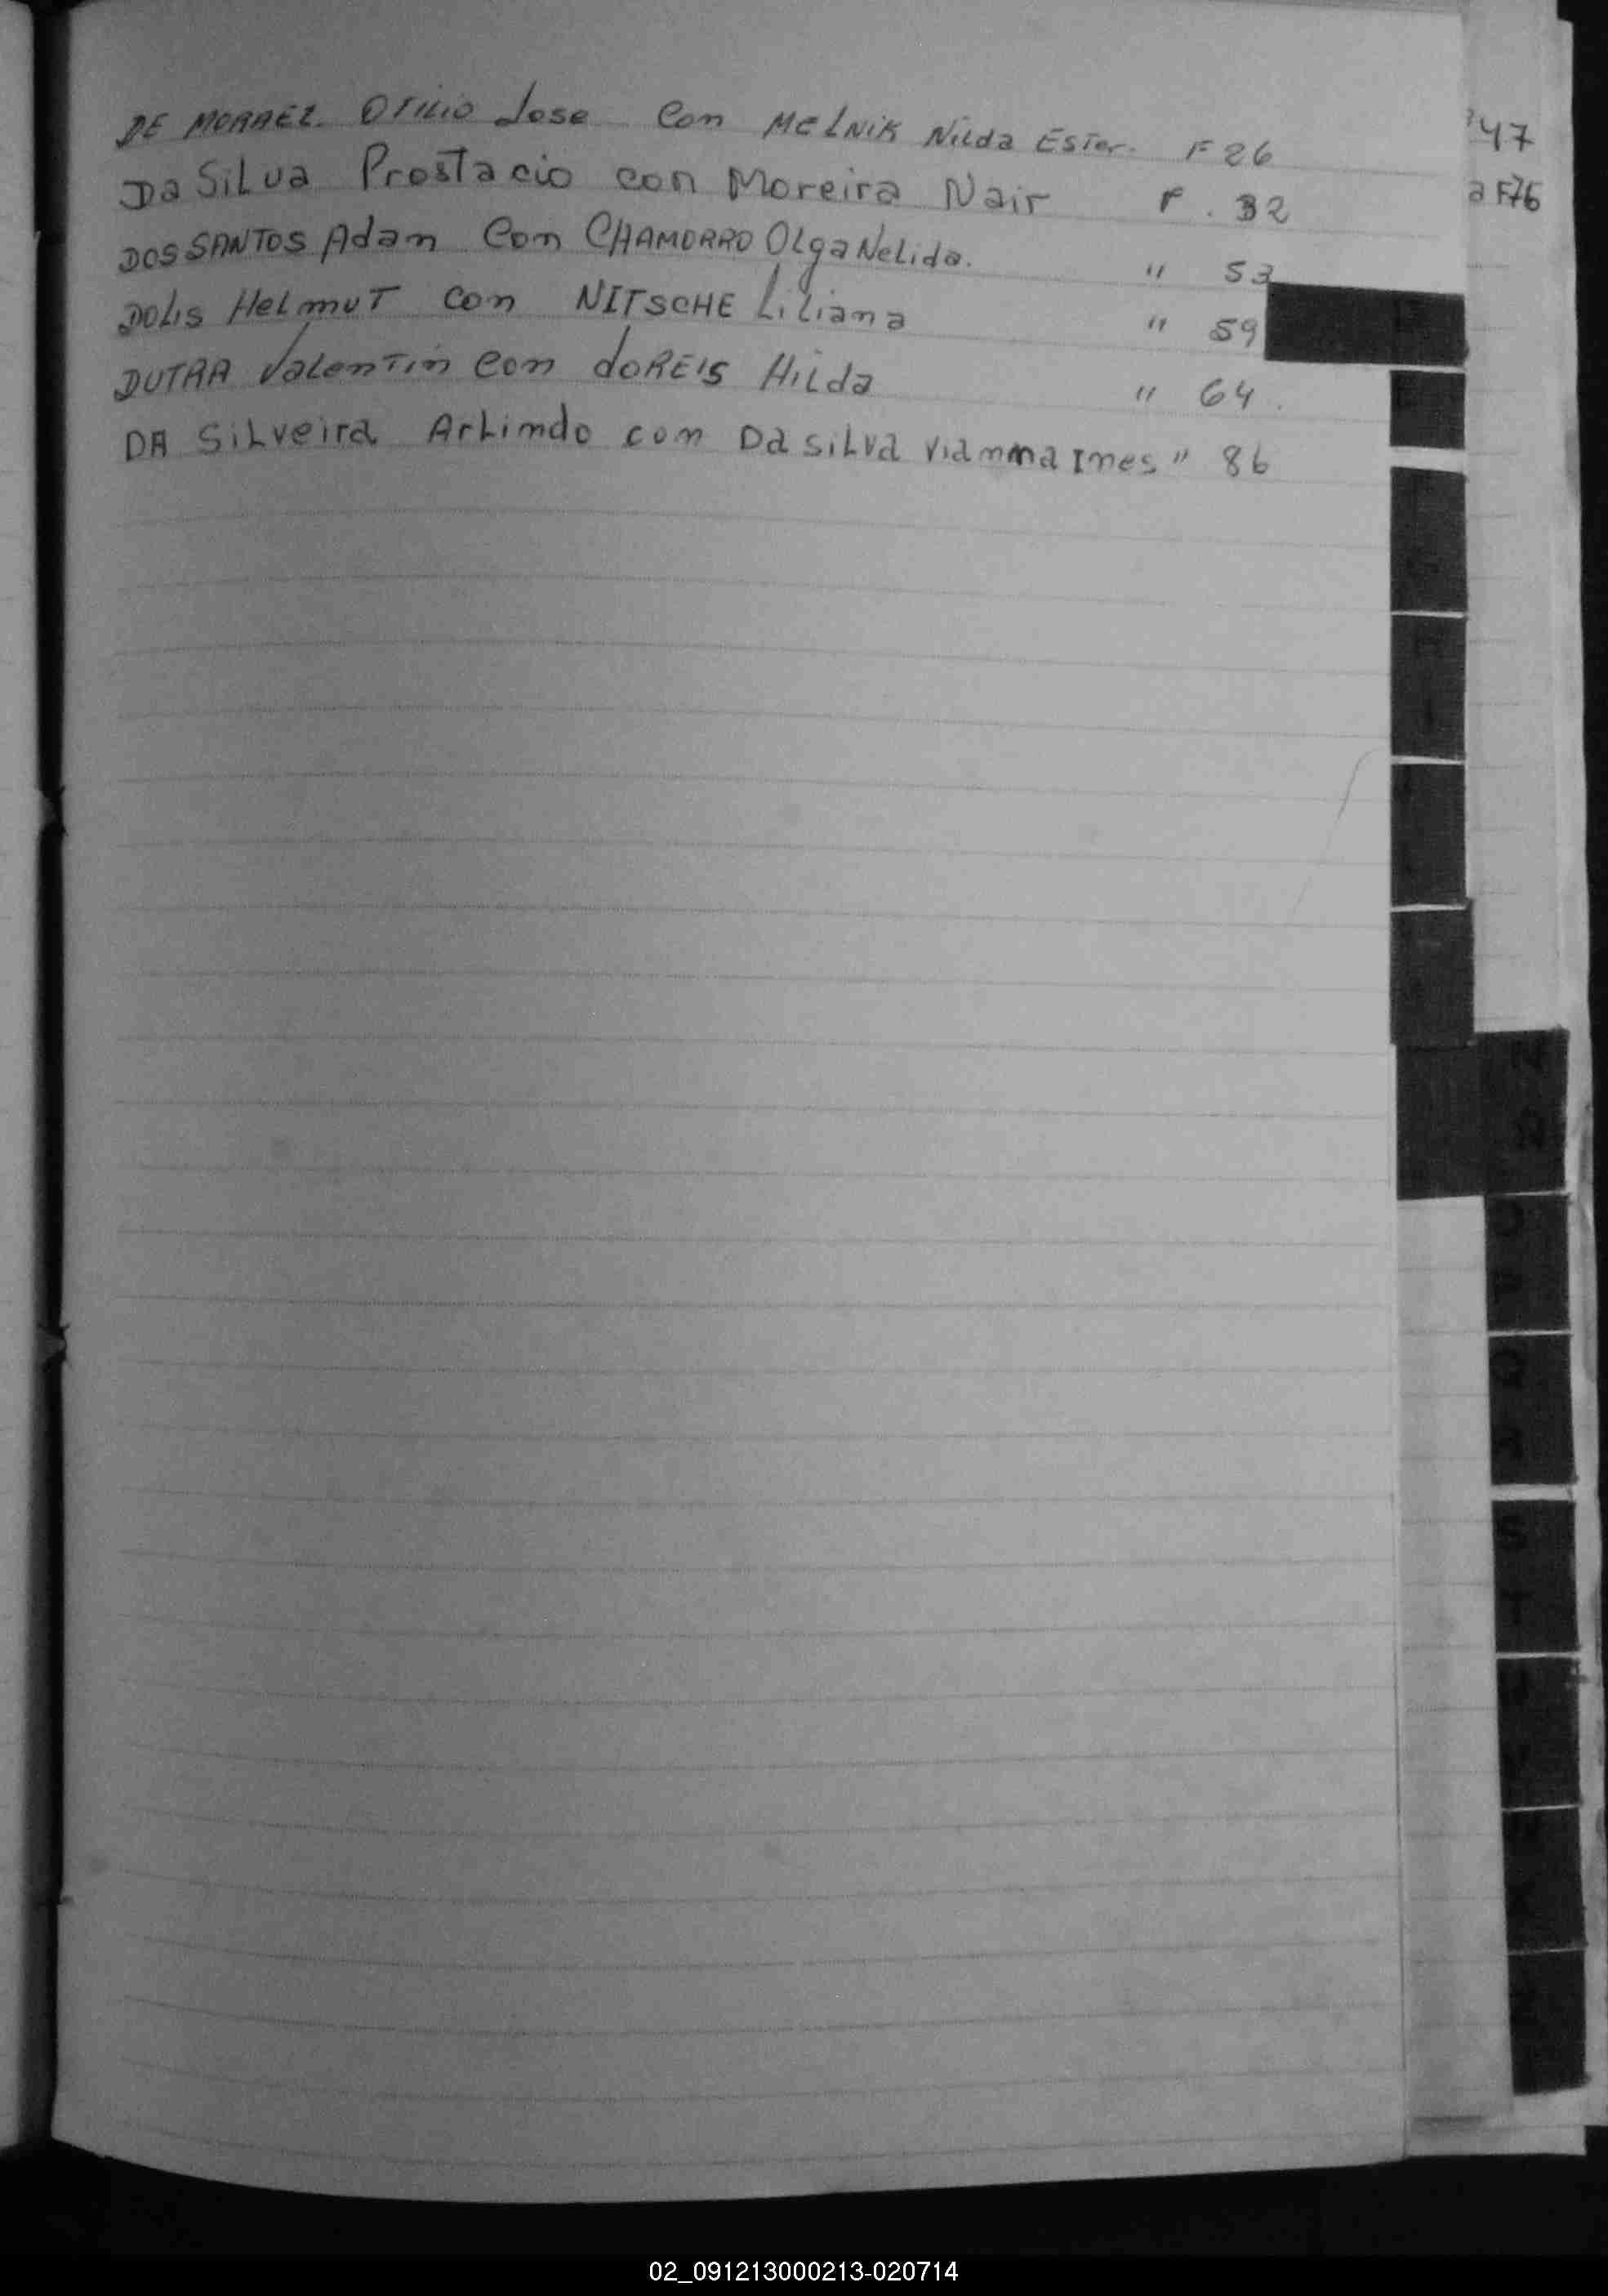 DE MORAEZ. OTILIO Jose Con MELNIK Nilda Ester. F 26
Da Silva Prostacio con Moreira Nair F. 32
DOS SANTOS Adan Con CHAMORRO Olga Nelida. " 53
DOLIS Helmut Con NITSCHE Liliana " 59
DUTRA Valentin Con doREIS Hilda " 64.
DA Silveira Arlindo con Da Silva Vianna Ines " 86
47
a F76
N
O
Q
S
T
02_091213000213-020714